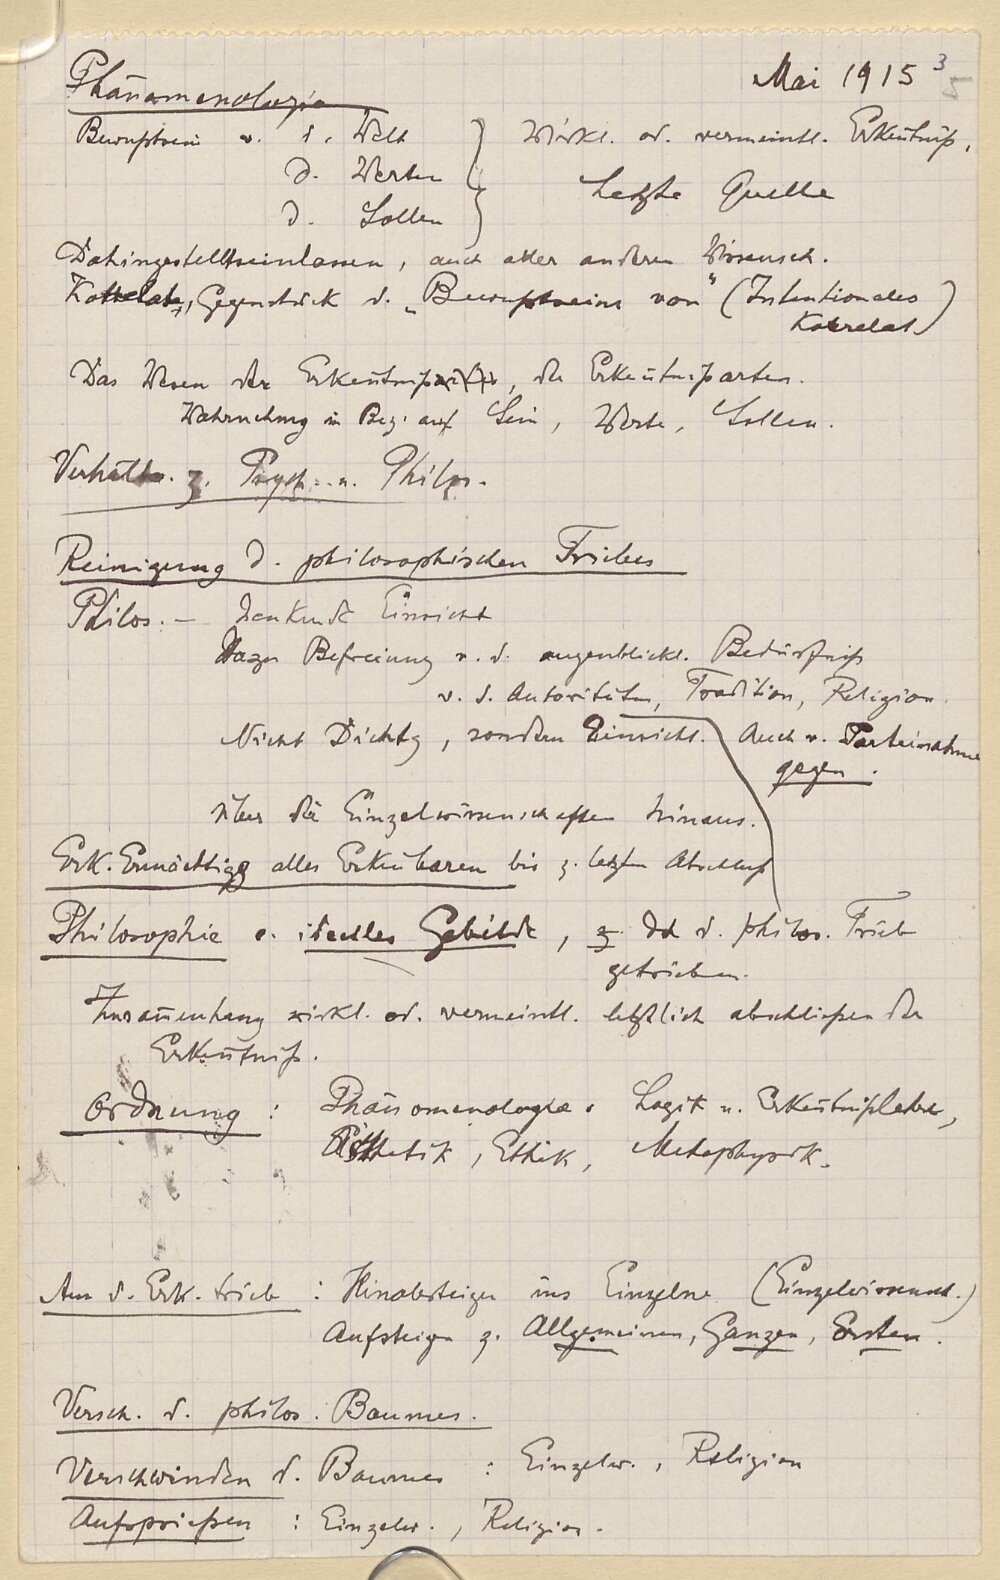 Mai 1915 3
Phänomenologie
Bewußtsein v. d. Welt } Wirkl. od. vermeintl. Erkeñtniß,
d. Werten
d. Sollen } Letzte Quelle
Dahingestelltseinlassen, auch aller anderen Wissensch.
Korrelate, Gegenstück d. „Bewußtseins von" (Intentionales
Korrelat)
Das Wesen der Erkeñtniß, die Erkeñtnißarten.
Wahrnehmg in Bez. auf Sein, Werte, Sollen.
Verhältn. z. Psych. u. Philos.
Reinigung d. philosophischen Triebes
Philos. — denkende Einsicht
Dazu Befreiung v. d. augenblickl. Bedürfniß
v. d. Autorität, Tradition, Religion.
Nicht Dichtg, sondern Einsicht. Auch v. Parteinahme
gegen.
über die Einzelwissenschaften hinaus.
Erk. Ermächtigg alles Erkeñbaren bis z. letzten Abschluß
Philosophie e. ideelles Gebilde, z. dd d. philos. Trieb
getrieben.
Zusam̄enhang wirkl. od. vermeintl. letztlich abschließender
Erkeñtniß.
Ordnung : Phänomenologie. Logik u. Erkeñtnißlehre,
Ästhetik, Ethik, Metaphysik.
Aus d. Erk. trieb : Hinabsteigen ins Einzelne (Einzelwissensch.)
Aufsteigen z. Allgemeinen, Ganzen, Ersten.
Versch. d. philos. Baumes.
Verschwinden d. Baumes : Einzelw., Religion
Aufsprießen : Einzelw., Religion.